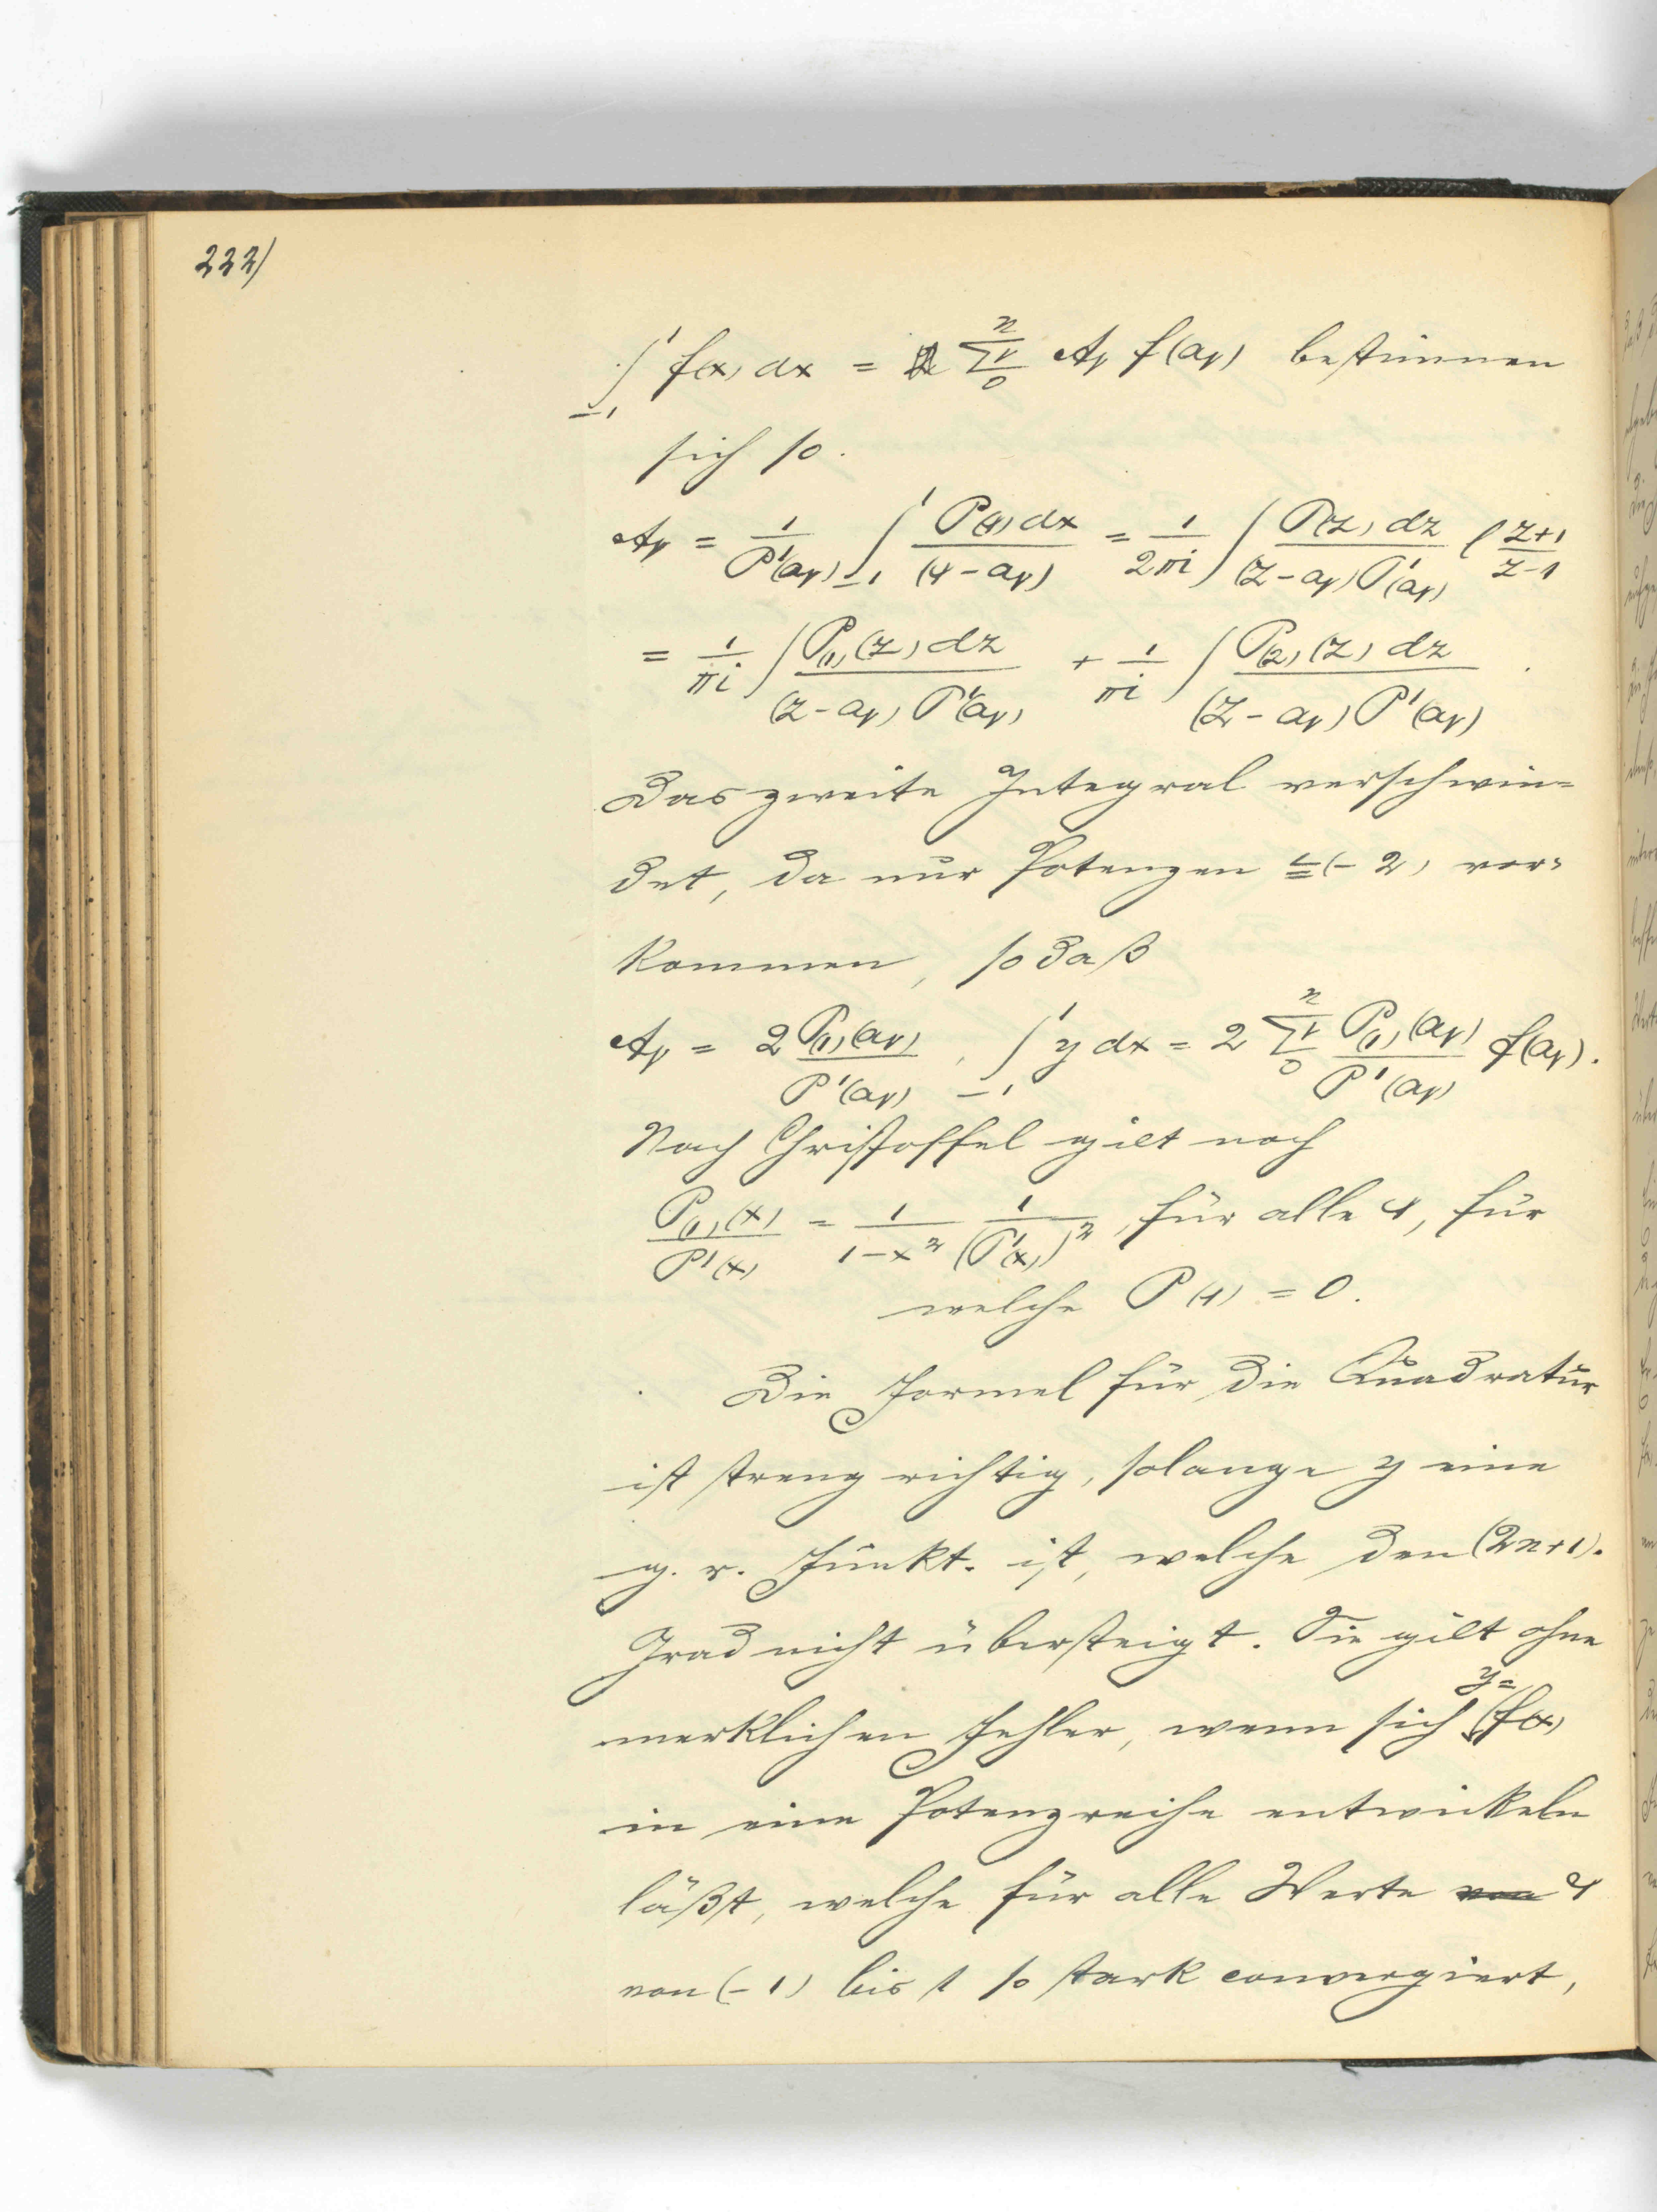 222)
∫₋₁¹ f(x) dx = Σ₀ⁿ Aν f(aν) bestimmen
sich so.
Aν = 1/P'(aν) ∫₋₁¹ P(x) dx/(x − aν) = 1/2πi ∫ P(z) dz/(z − aν) P'(aν) l (z+1)/(z−1)
= 1/πi ∫ P₍₁₎(z) dz/(z − aν) P'(aν) + 1/πi ∫ P₍₂₎(z) dz/(z − aν) P'(aν).
Das zweite Integral verschwin=
det, da nur Potenzen ≦ (−2) vor=
kommen, so daß
Aν = 2 P₍₁₎(aν)/P'(aν), ∫₋₁¹ y dx = 2 Σ₀ⁿ P₍₁₎(aν)/P'(aν) f(aν).
Nach Christoffel gilt noch
P₍₁₎(x)/P'(x) = 1/(1−x²) 1/(P'(x))², für alle x, für
welche P(x) = 0.
Die Formel für die Quadratur
ist streng richtig, solange y eine
g. r. Funkt. ist, welche den (2n+1).
Grad nicht übersteigt. Sie gilt ohne
merklichen Fehler, wenn sich y= f(x)
in eine Potenzreihe entwickeln
läßt, welche für alle Werte von x
von (−1) bis 1 so stark convergiert,